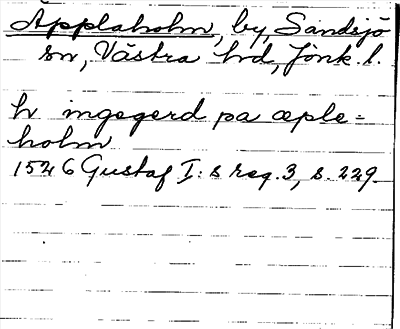 Äpplaholm, by, Sandsjö
sn, Västra hd, Jönk. l.
h ingegerd pa æple=
holm
1526 Gustaf I:s reg. 3, s. 229